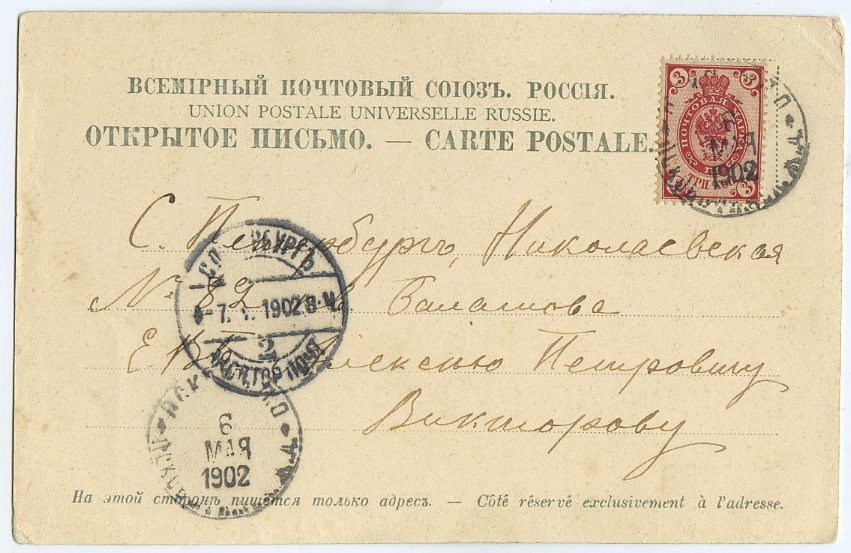 ВСЕМІРНЫЙ ПОЧТОВЫЙ СОЮЗЪ. РОССІЯ.
UNION POSTALE UNIVERSELLE RUSSIE.
ОТКРЫТОЕ ПИСЬМО. — CARTE POSTALE.
3 3
ПОЧТОВАЯ
ТРИ
3
6
МАЯ
1902
С. Петербургъ, Николаевская
№ 82 кв. Балашова
Е. В. Алексѣю Петровичу
Викторову
7. 1902
2
6
МАЯ
1902
На этой сторонѣ пишется только адресъ. — Côté réservé exclusivement à l'adresse.